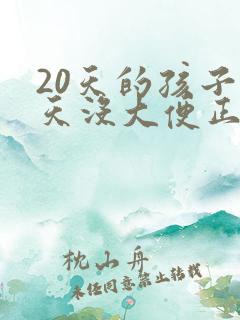 20天的孩子
天没大便正
枕山舟
未经同意禁止转载